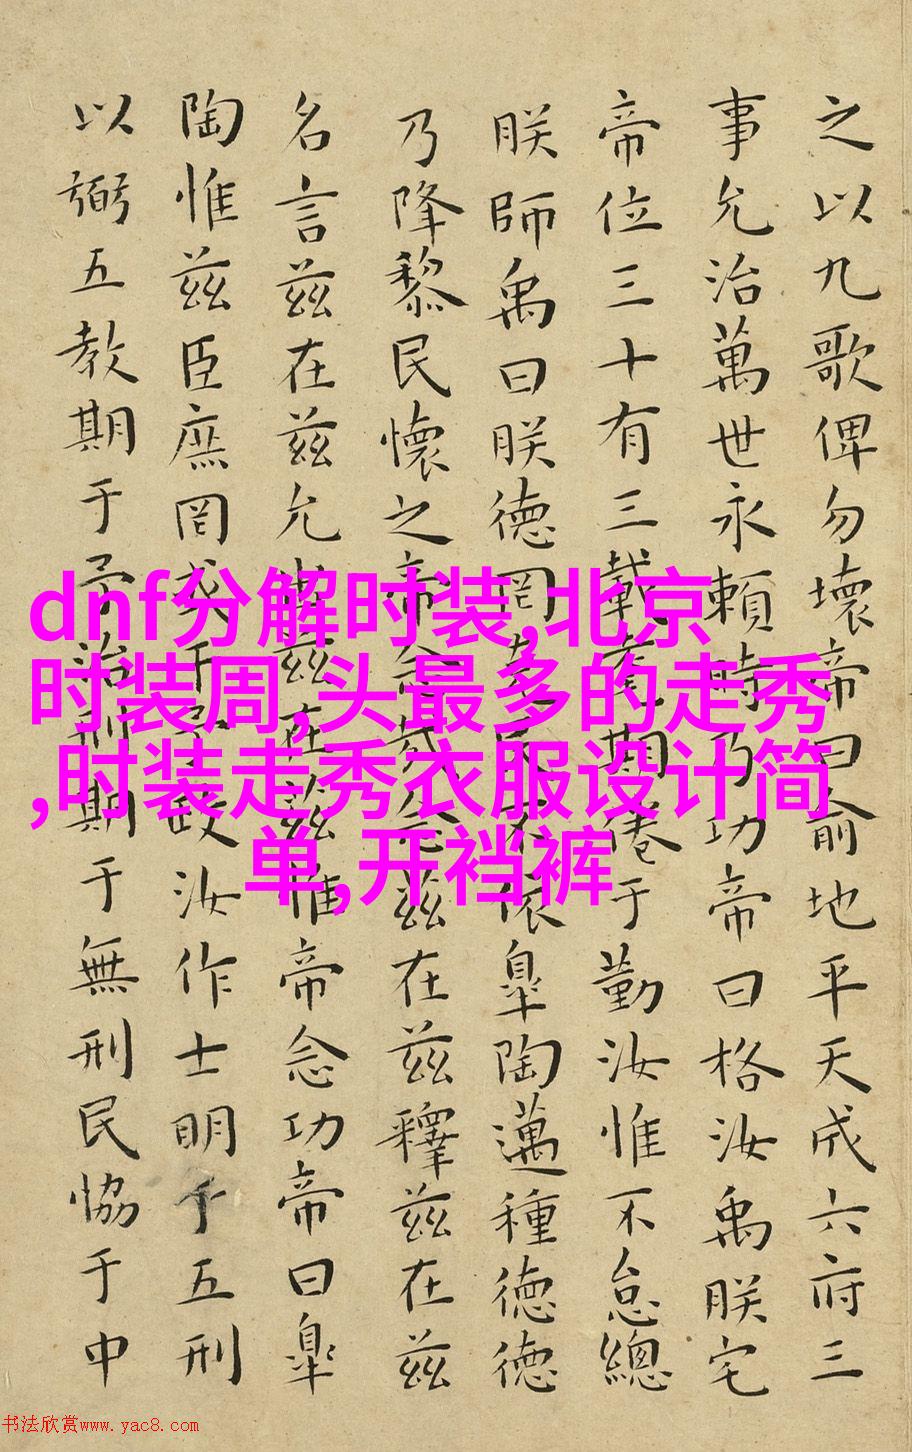 之以九歌俾勿壞帝曰俞地平天成六府三
事允治萬世永賴時乃功帝曰格汝禹朕宅
帝位三十有三載耄期倦于勤汝惟不怠總
朕師禹曰朕德罔克民不依皐陶邁種德德
乃降黎民懷之帝念哉念茲在茲釋茲在茲
名言茲在茲允出茲在茲惟帝念功帝曰皐
陶惟茲臣庶罔或干予政汝作士明于五刑
以弼五教期于予治刑期于無刑民協于中
dnf分解时装,北京
时装周,头最多的走秀
,时装走秀衣服设计简
单,开裆裤
书法欣赏www.yac8.com